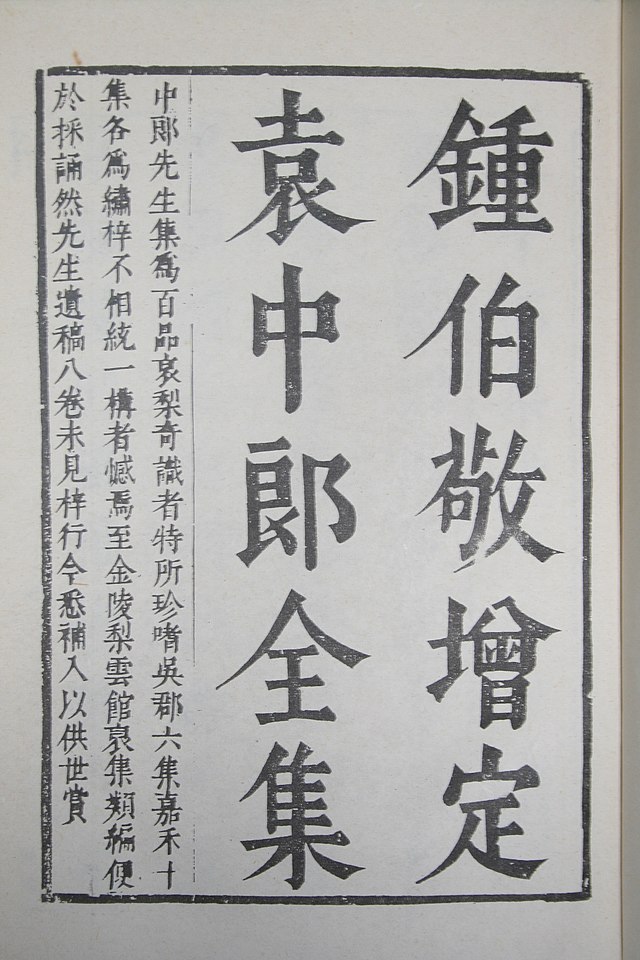 鍾伯敬增定
袁中郎全集
中郎先生集爲百品哀梨奇識者特所珍嗜吳郡六集嘉禾十
集各爲繡梓不相統一構者憾焉至金陵梨雲館裒集類編便
於採誦然先生遺稿八卷未見梓行今悉補入以供世賞